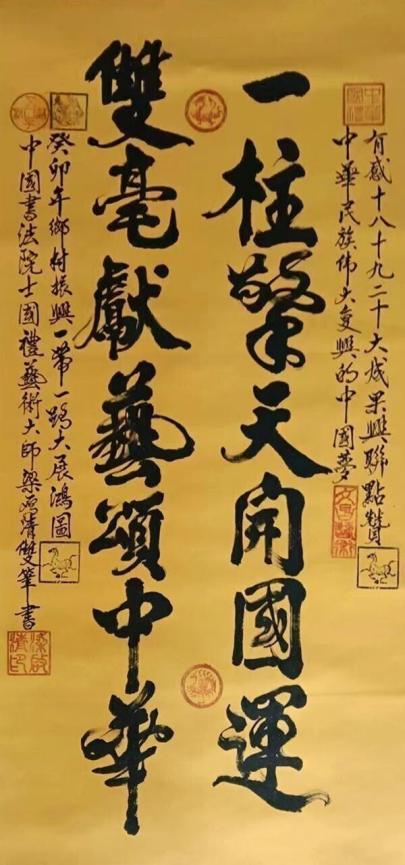 有感十八十九二十大成果興聯點贊
中華民族伟大复興的中國夢
一柱擎天開國運
雙毫獻藝頌中華
癸卯年鄉村振興一帶一路大展鴻圖
中國書法院士國禮藝術大師梁啟清雙筆書